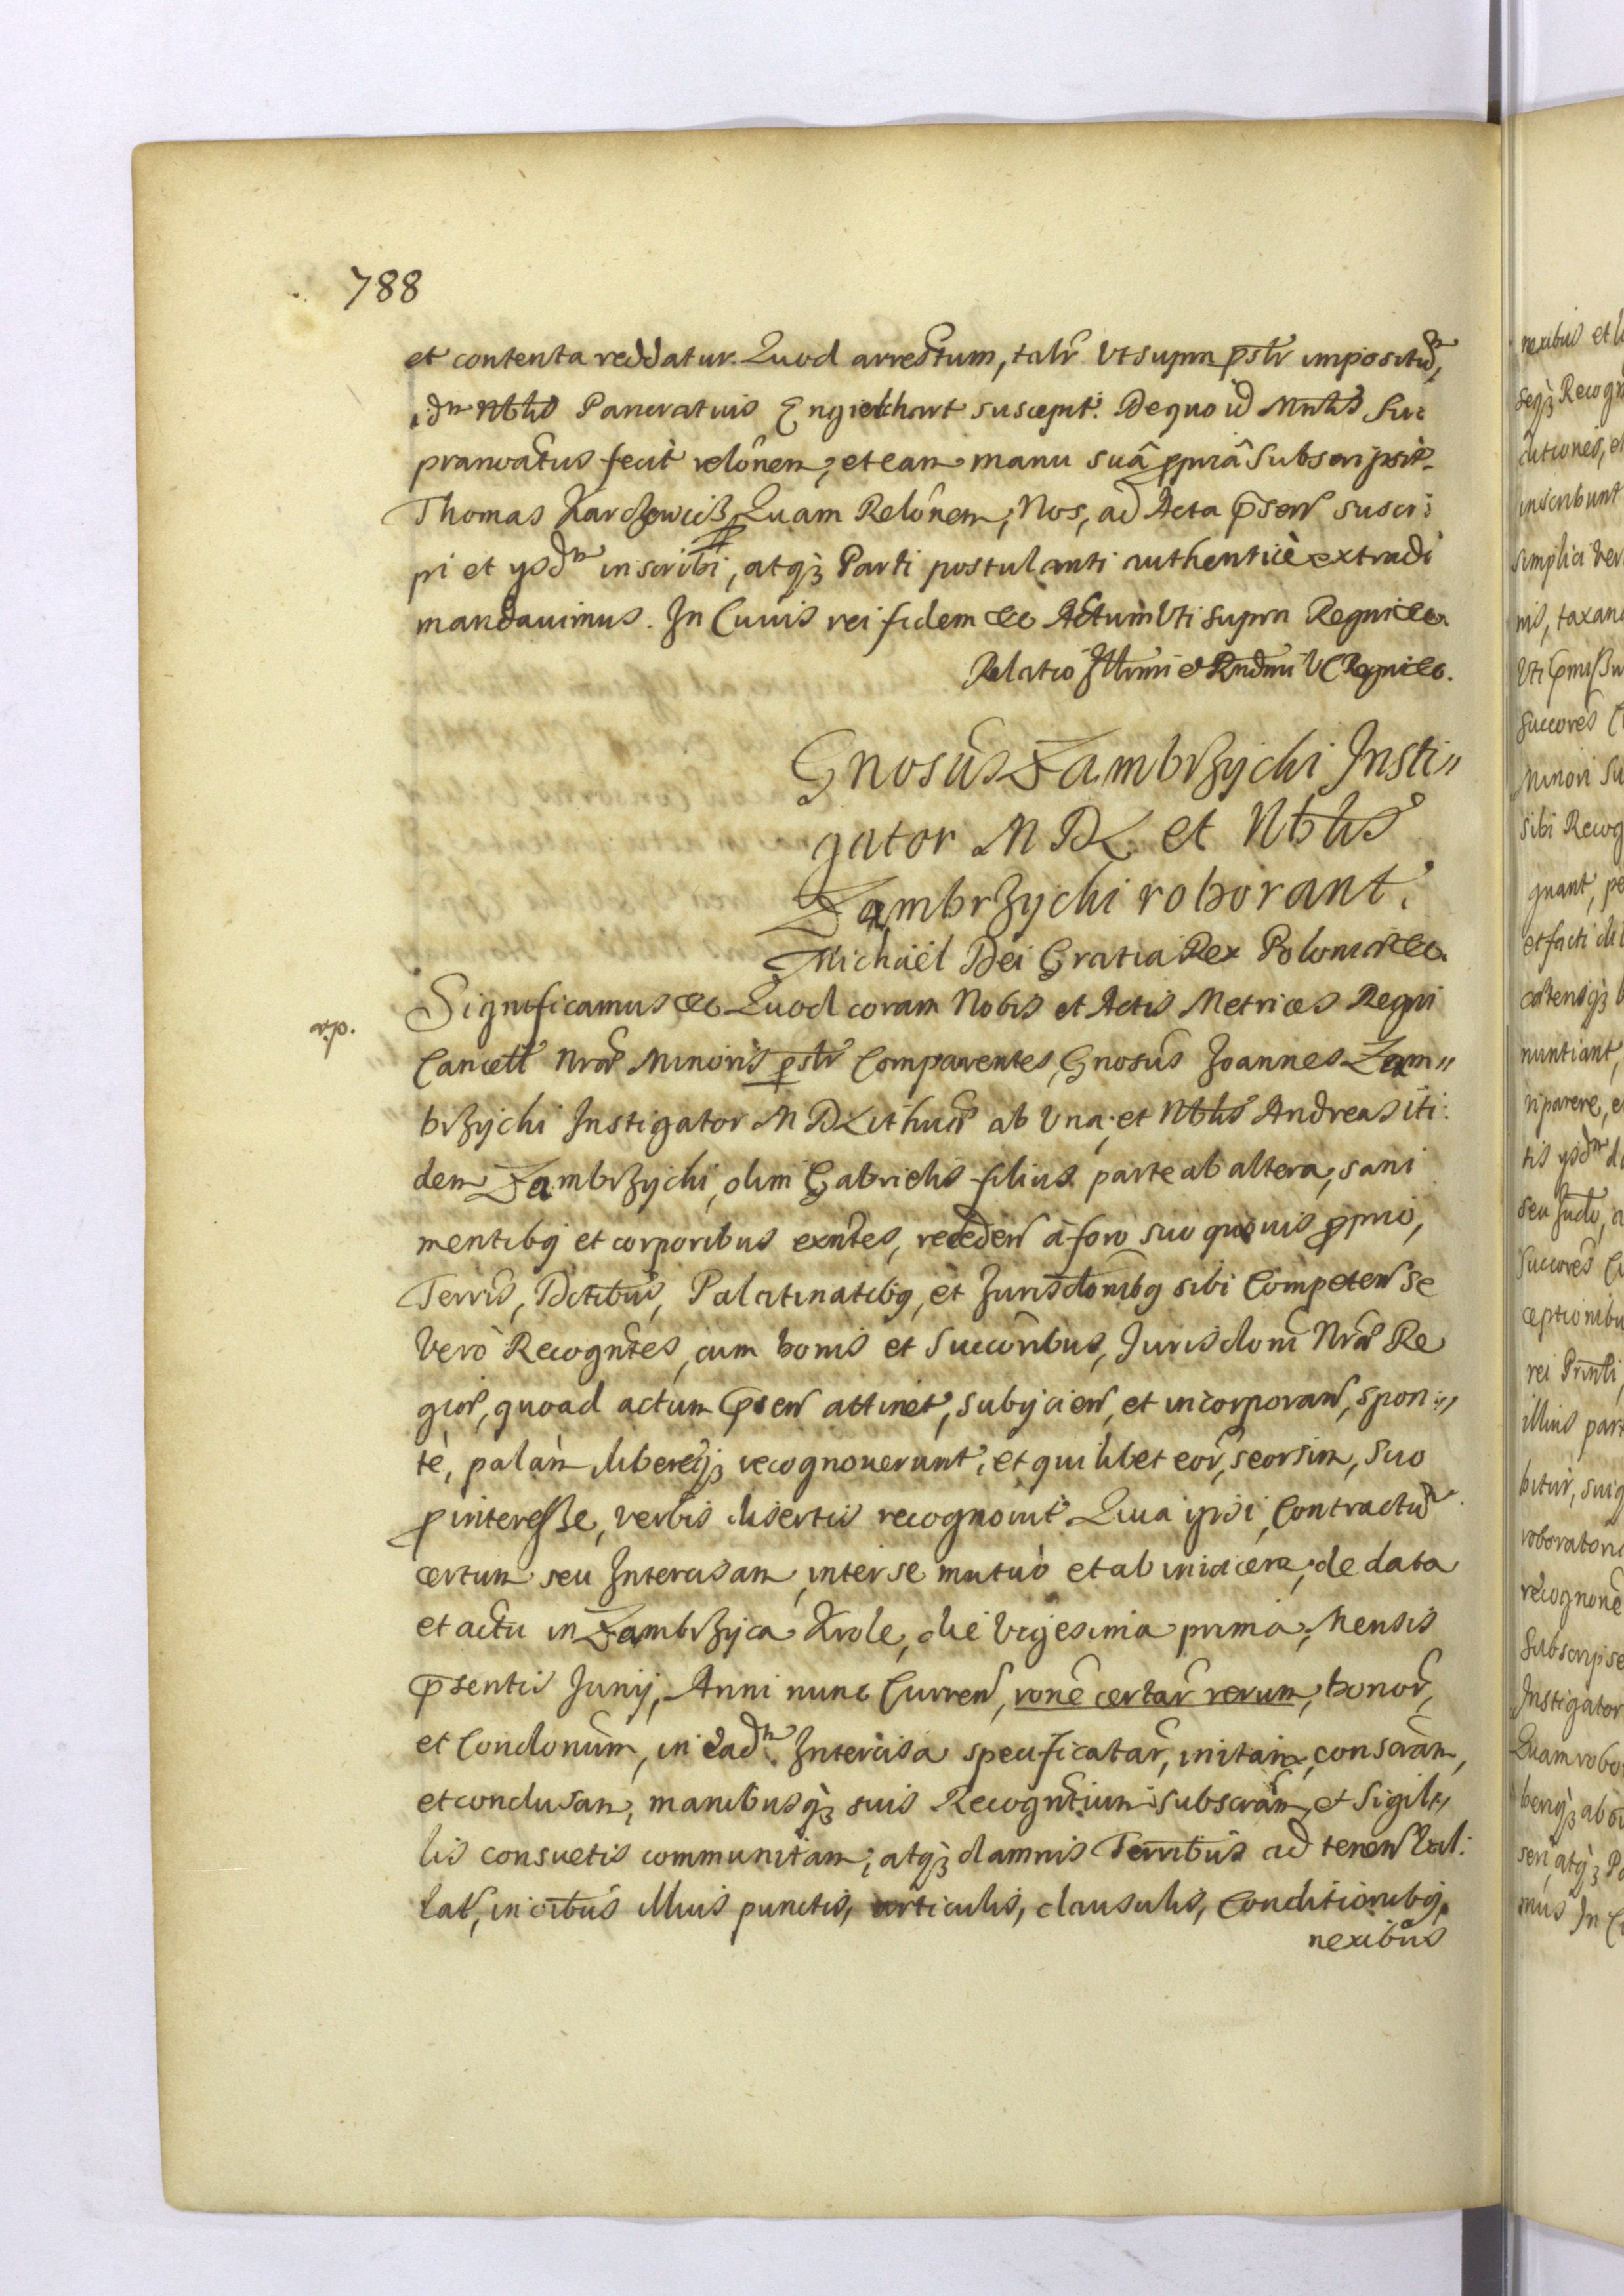 788
et contenta reddatur. Quod arrestum, talr Vt supra pstr impositũ,
idm Nbłis Pancratius Engielchart suscepit. De quo id Mnłis Su:
pranoãtus fecit relõnem, et eam manu suâ ppriâ subscripsit.
Thomas Karczewicz Quam Relõnem, Nos, ad Acta p̃sen suscri:
pi et ysdm inscribi, atq3 Parti postulanti authenticè extradi
mandauimus. In Cuius rei fidem &c Actum Vti supra Regni &c.
Relatio Illrimi & Rndmi VC Regni &c.
Gnosus Zambrzychi Insti„
gator M D L et Nbłis
Zambrzychi roborant.
Michaël Dei Gratia Rex Poloniæ &c.
Significamus &c Quod coram Nobis et Actis Metrices Regni
Cancell Nræ Minoris pstr Comparentes, Gnosus Joannes Zam„
brzychi Instigator M D Lithuæ ab Vna, et Nbłis Andreas iti:
dem Zambrzychi, olim Gabrielis filius parte ab altera, sani
mentibq et corporibus exntes, receden à foro suo quouis pprio,
Terris, Dctibus, Palatinatibq, et Jurisdõnibq sibi Competen se
Vero Recogntes, cum bonis et Succoribus, Jurisdoni Nræ Re
giæ, quoad actum p̃sen attinet, subijcien, et incorporan, spon„
te, palam libereq3 recognouerunt, et quilibet eor, seorsim, suo
p interesse, verbis disertis recognouit. Quia ipsi, Contractũ
certum seu Intercisam, inter se mutuò et ab inicem, de data
et actu in Zambrzyca Krole, die Vigesima prima, Mensis
p̃sentis Junij, Anni nunc Curren, rone certar rerum, bonor,
et Condonum, in eadm. Intercisa specificatar, initam, conscram,
et conclusam, manibusq3 suis Recogntium subscram, et Sigil„
lis consuetis communitam, atq3 damnis Terribus ad tenen
lat, in oibus illius punctis, articulis, clausulis, Conditionibq,
nexibus
vp.